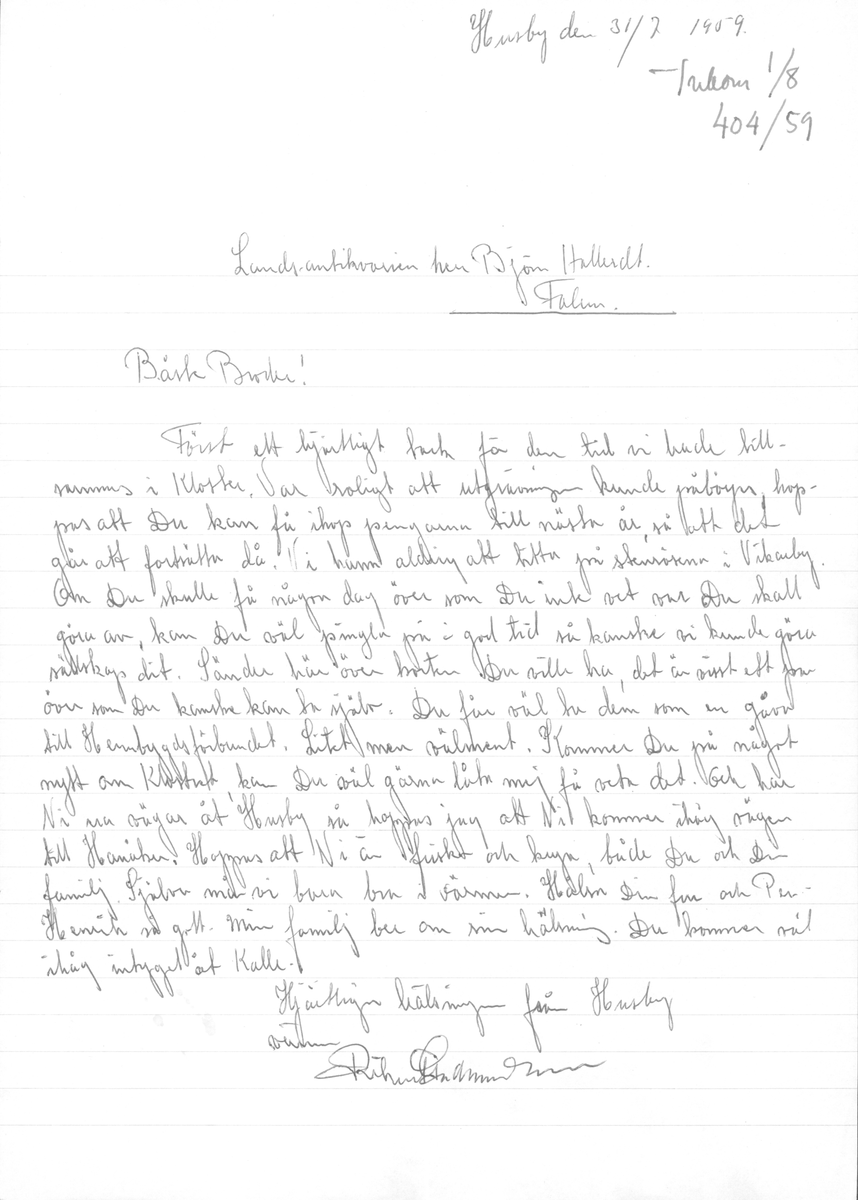 Husby den 31/7 1959.
Inkom 1/8
404/59
Landsantikvarien herr Björn Hallerdt.
Falun.
Bäste Broder!
Först ett hjärtligt tack för den tid vi hade till-
sammans i Kloster. Var roligt att utgrävningen kunde påbörjas, hop-
pas att Du kan få ihop pengarna till nästa år, så att det
går att fortsätta då. Vi hann aldrig att titta på stenrösena i Vikarby.
Om Du skulle få någon dag över som Du inte vet var Du skall
göra av, kan Du väl pingla på i god tid så kanske vi kunde göra
sällskap dit. Sänder här över korten Du ville ha, det är visst ett par
över som Du kanske kan ha själv. Du får väl ta dem som en gåva
till Hembygdsförbundet. Litet men välment. Kommer Du på något
nytt om Klostret, kan Du väl gärna låta mig få veta det. Och har
Ni era vägar åt Husby så hoppas jag att Ni kommer ihåg vägen
till Hanåker. Hoppas att Ni är friska och krya, både Du och Din
familj. Själva må vi bara bra i värmen. Hälsa Din fru och Per-
Henrik så gott. Min familj ber om sin hälsning. Du kommer väl
ihåg intyget åt Kalle.
Hjärtliga hälsningar från Husby
vännen